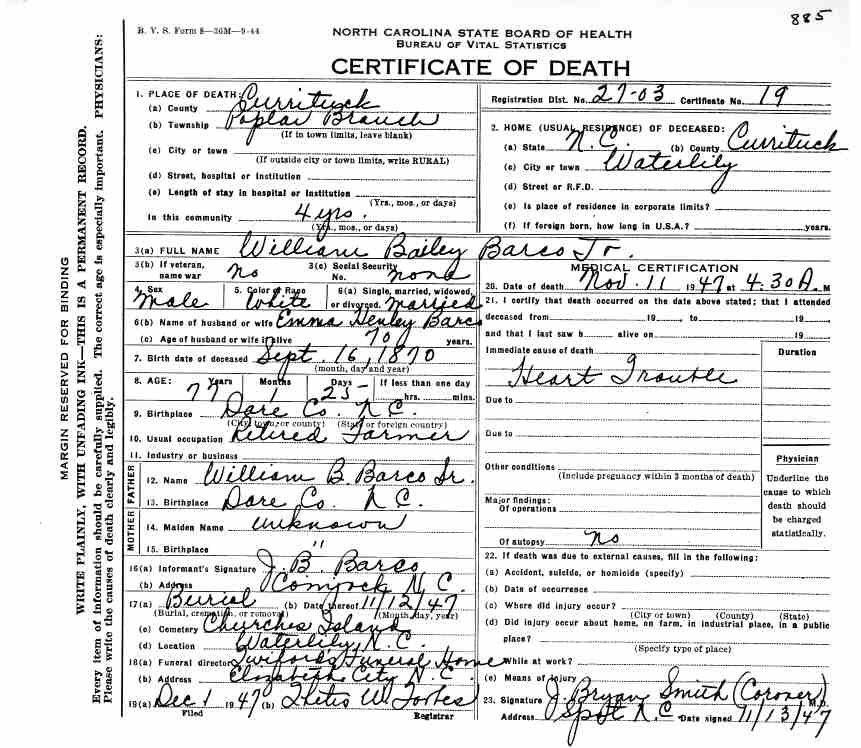 885
B. V. S. Form 8—36M—9-44
NORTH CAROLINA STATE BOARD OF HEALTH
BUREAU OF VITAL STATISTICS
CERTIFICATE OF DEATH
MARGIN RESERVED FOR BINDING
WRITE PLAINLY, WITH UNFADING INK—THIS IS A PERMANENT RECORD.
Every item of information should be carefully supplied. The correct age is especially important. PHYSICIANS:
Please write the causes of death clearly and legibly.
1. PLACE OF DEATH:
(a) County Currituck
(b) Township Poplar Branch
(If in town limits, leave blank)
(c) City or town
(If outside city or town limits, write RURAL)
(d) Street, hospital or institution
(e) Length of stay in hospital or institution
(Yrs., mos., or days)
In this community 4 yrs.
(Yrs., mos., or days)
Registration Dist. No. 27-03 Certificate No. 19
2. HOME (USUAL RESIDENCE) OF DECEASED:
(a) State N.C. (b) County Currituck
(c) City or town Waterlily
(d) Street or R.F.D.
(e) Is place of residence in corporate limits?
(f) If foreign born, how long in U.S.A.? years.
3(a) FULL NAME William Bailey Barco Jr.
3(b) If veteran, name war No 3(c) Social Security No. none
4. Sex Male 5. Color of Race White 6(a) Single, married, widowed, or divorced. married
6(b) Name of husband or wife Emma Henley Barco
(c) Age of husband or wife if alive 70 years.
7. Birth date of deceased Sept. 16, 1870
(month, day and year)
8. AGE: Years 77 Months 1 Days 25 If less than one day — hrs. mins.
9. Birthplace Dare Co. N.C.
(City, town, or county) (State or foreign country)
10. Usual occupation Retired Farmer
11. Industry or business
FATHER
12. Name William B. Barco Sr.
13. Birthplace Dare Co. N.C.
MOTHER
14. Maiden Name unknown
15. Birthplace "
16(a) Informant's Signature J. B. Barco
(b) Address Comjock N.C.
17(a) Burial (b) Date thereof 11/12/47
(Burial, cremation, or removal) (Month, day, year)
(c) Cemetery Churches Island
(d) Location Waterlily, N.C.
18(a) Funeral director Twiford's Funeral Home
(b) Address Elizabeth City N.C.
19(a) Dec 1 1947 (b) Thetis W. Forbes
Filed Registrar
MEDICAL CERTIFICATION
20. Date of death Nov. 11 1947 at 4:30 A. M
21. I certify that death occurred on the date above stated; that I attended
deceased from 19 , to 19
and that I last saw h alive on 19
Immediate cause of death Duration
Heart Trouble
Due to
Due to
Other conditions
(Include pregnancy within 3 months of death)
Major findings:
Of operations
Of autopsy no
Physician
Underline the
cause to which
death should
be charged
statistically.
22. If death was due to external causes, fill in the following:
(a) Accident, suicide, or homicide (specify)
(b) Date of occurrence
(c) Where did injury occur?
(City or town) (County) (State)
(d) Did injury occur about home, on farm, in industrial place, in a public
place?
(Specify type of place)
While at work?
(e) Means of injury
23. Signature J. Bryan Smith (Coroner) M.D.
Address Spot N.C. Date signed 11/13/47